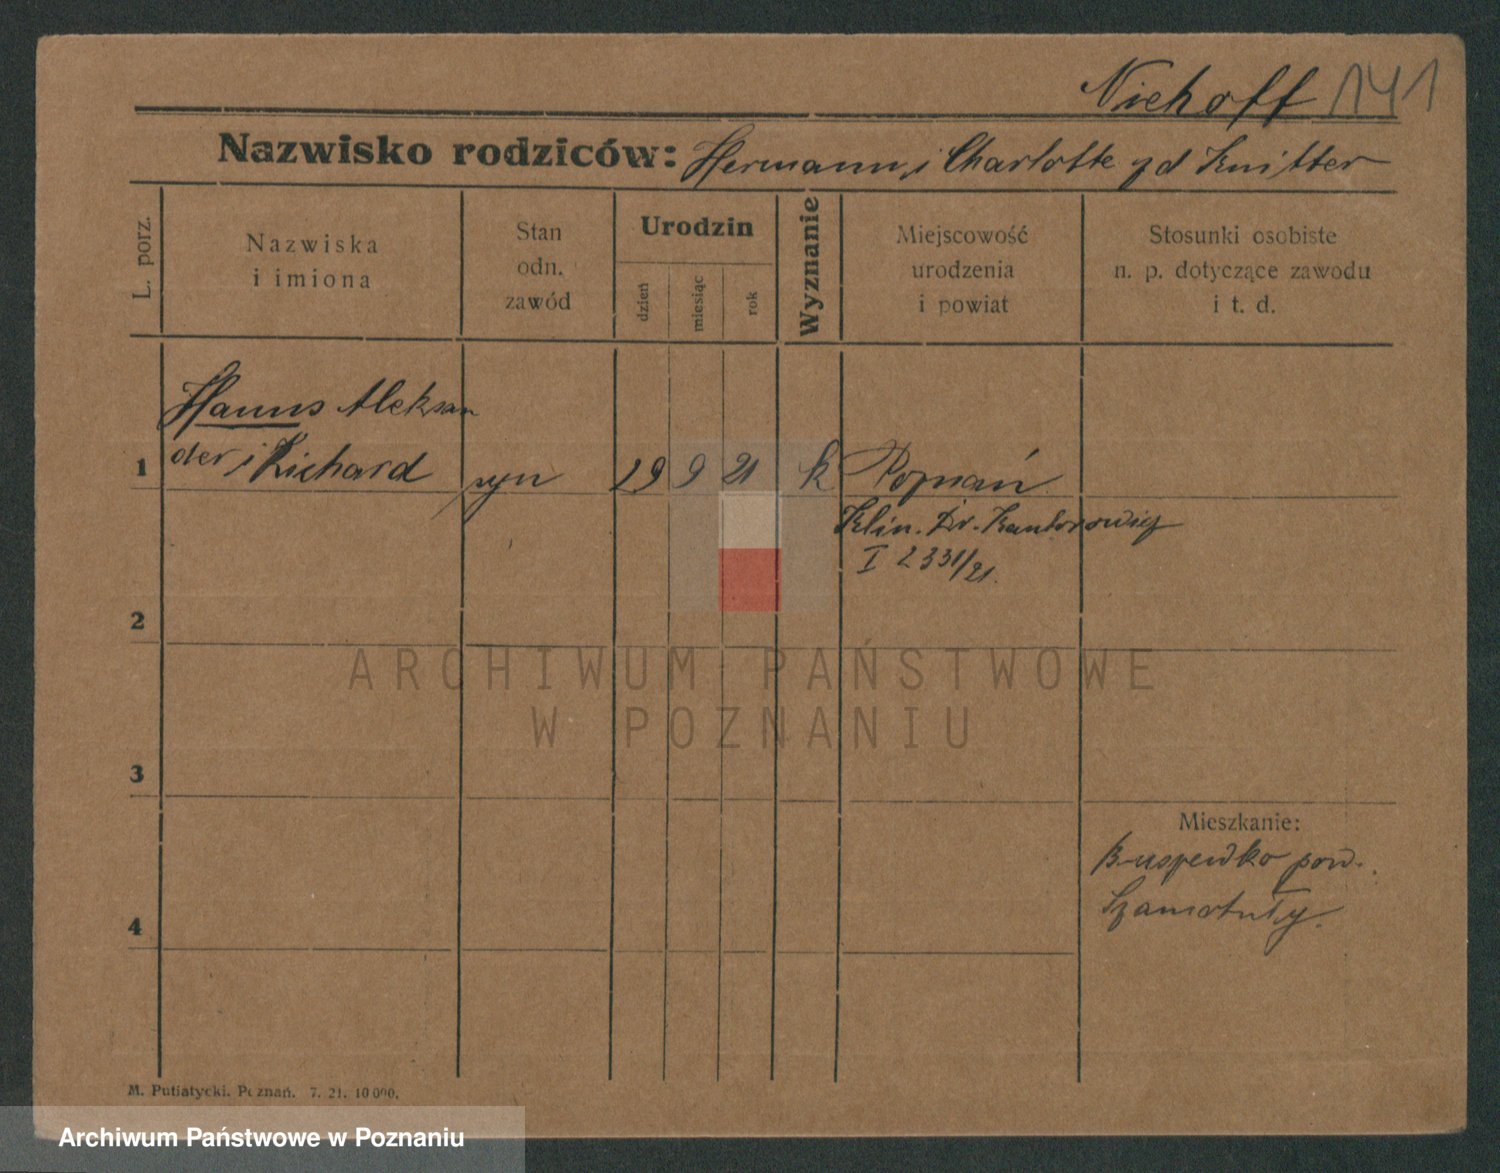 Niehoff 141
Nazwisko rodziców: Hermann i Charlotte zd Knitter
L. porz.
Nazwiska
i imiona
Stan
odn.
zawód
Urodzin
dzień
miesiąc
rok
Wyznanie
Miejscowość
urodzenia
i powiat
Stosunki osobiste
n. p. dotyczące zawodu
i t. d.
Hanns Aleksan
1 der i Richard syn 29 9 21 k Poznań
Klin. Dr. Kantorowicz
I 2331/21.
2
ARCHIWUM PAŃSTWOWE
W POZNANIU
3
Mieszkanie:
pow.
4 Szamotuły.
M. Putiatycki. Poznań. 7. 21. 10 000.
Archiwum Państwowe w Poznaniu